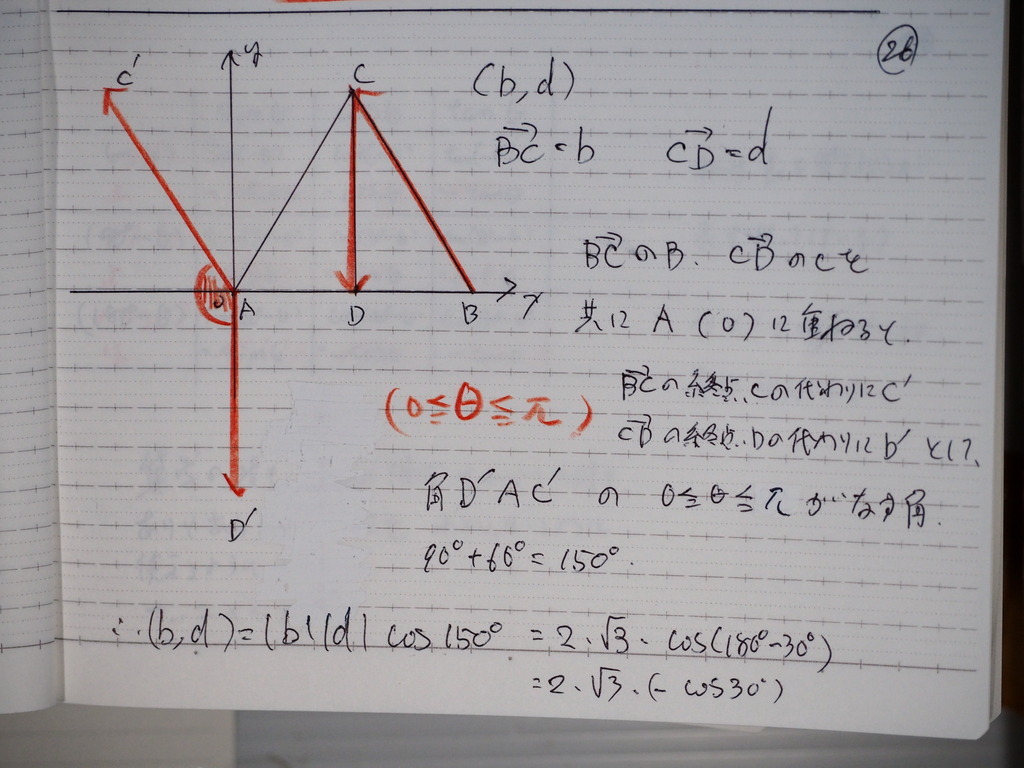 26
C' y C (b,d)
BC=b CD=d
BCのB. CDのCを
A D B x
共に A (0) に重ねると.
BCの終点.Cの代わりにC'
(0≦θ≦π)
CDの終点.Dの代わりにD' として、
角D'AC' の 0≦θ≦π がなす角.
D'
90°+60°=150°.
∴(b,d)=|b||d| cos150° =2・√3・cos(180°-30°)
=2・√3・(-cos30°)